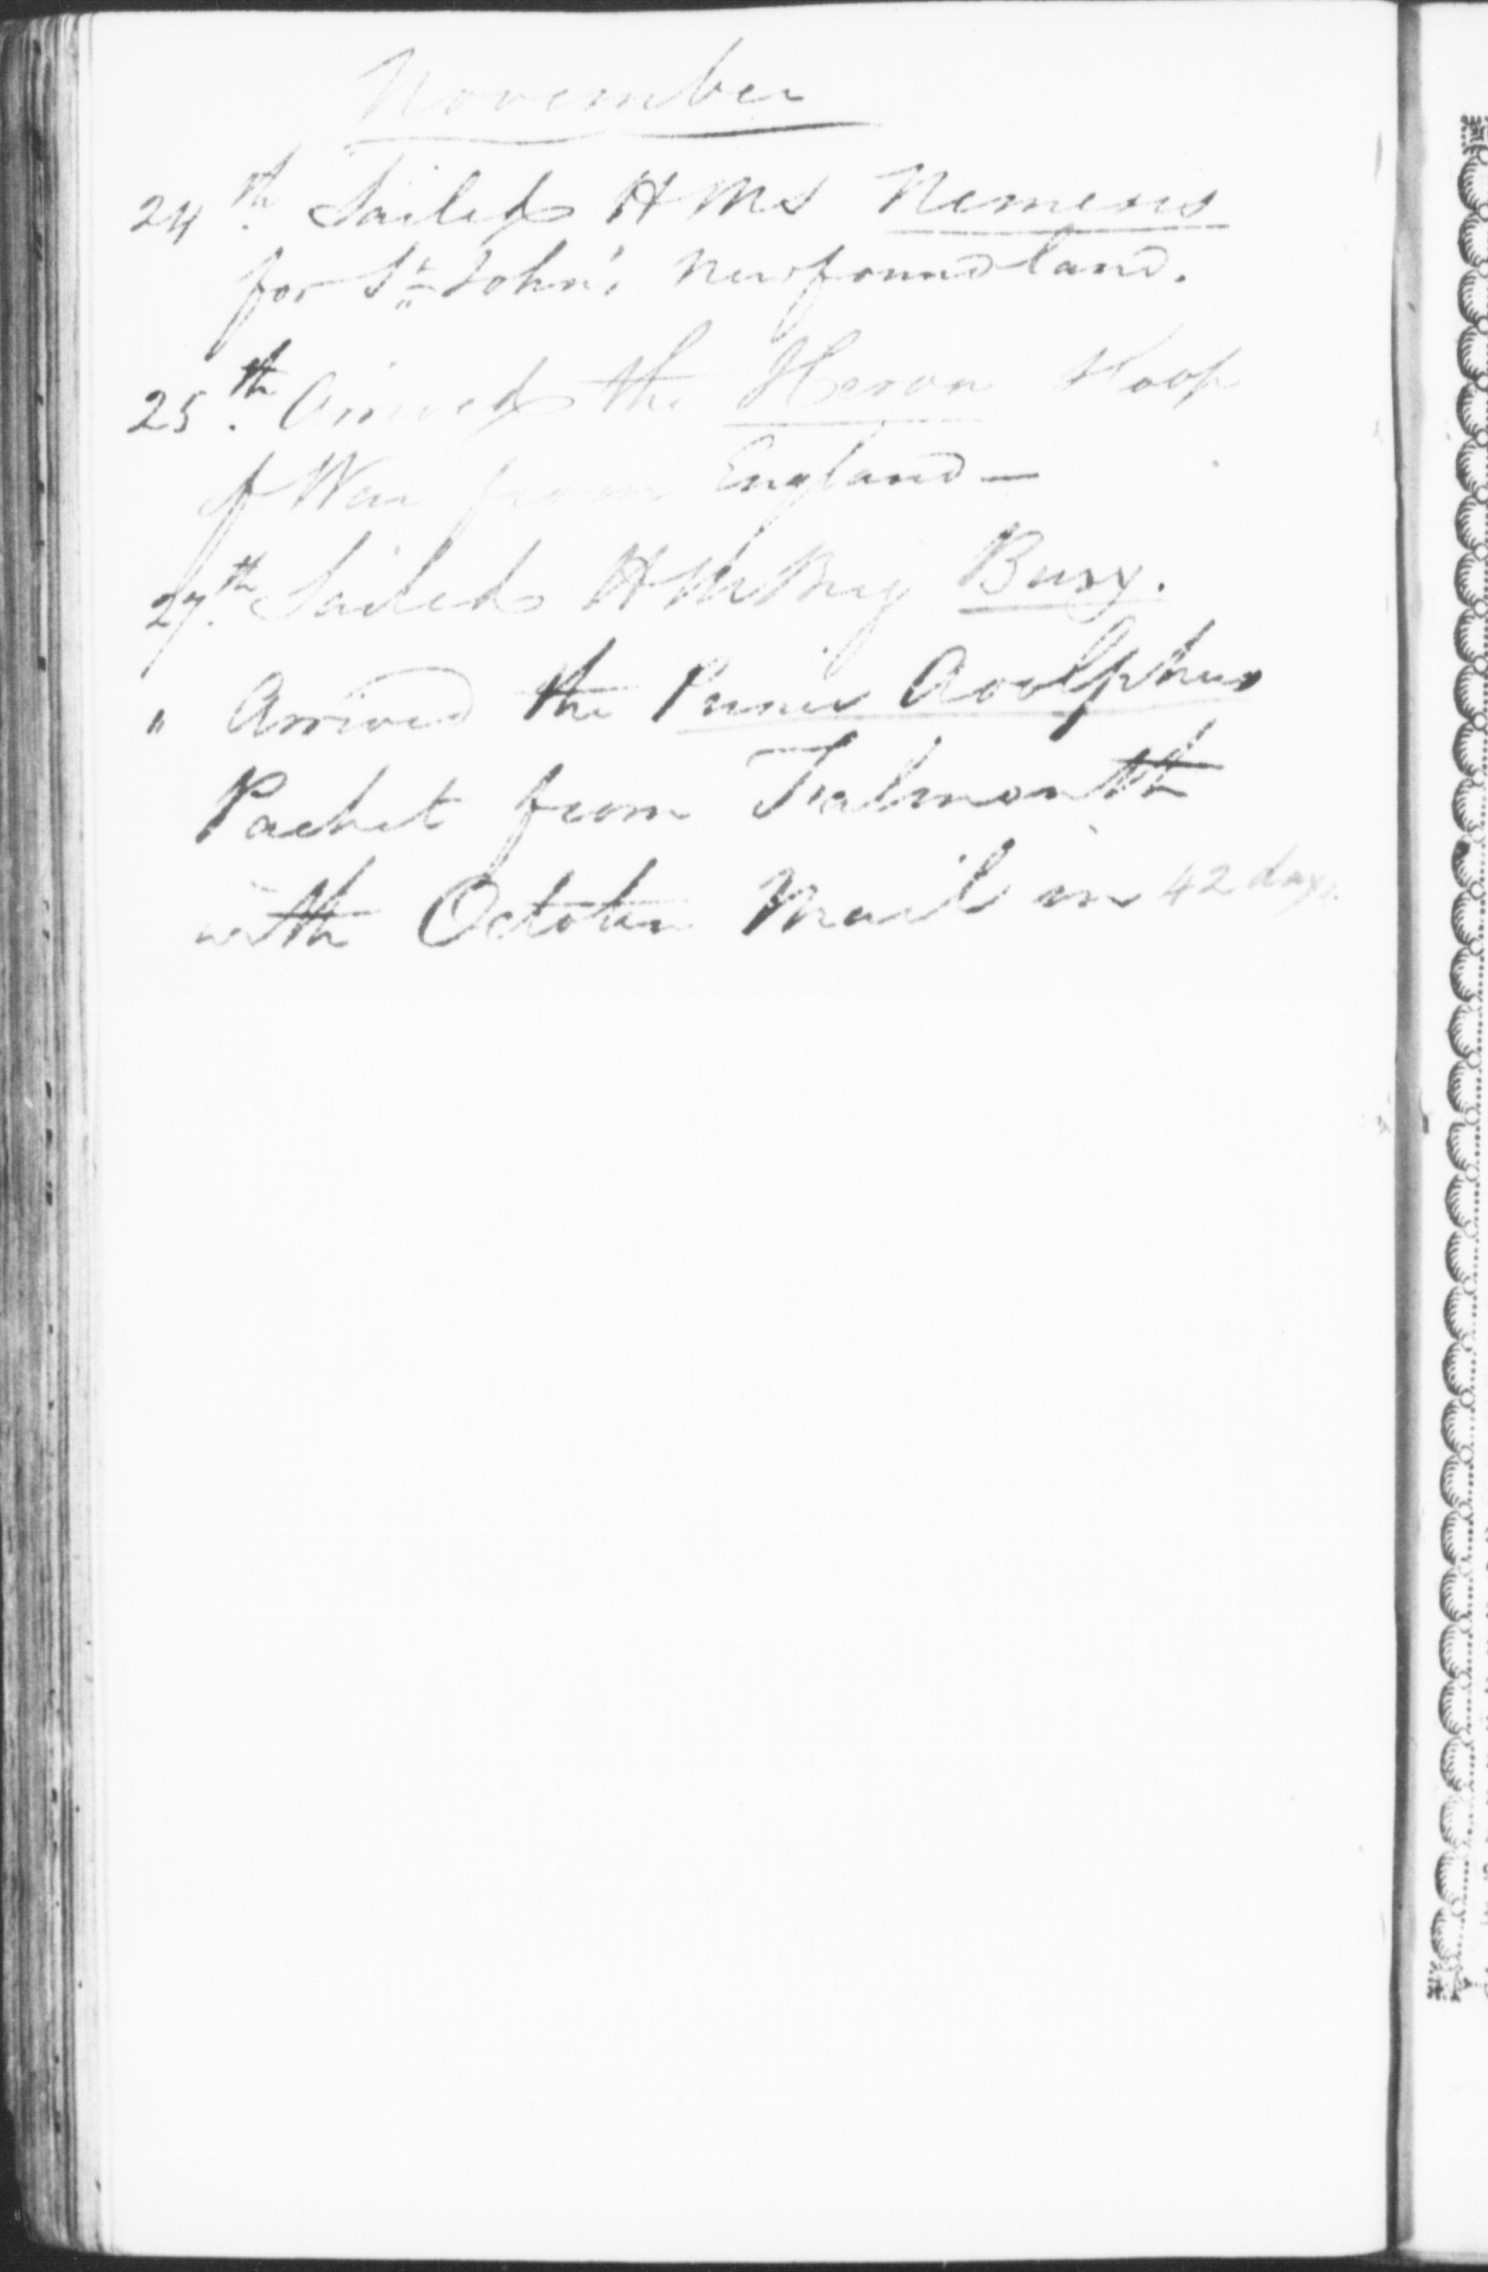 November
24th. Sailed HMS Nemesis
for St. John's Newfoundland.
25th. Arrived the Heron Sloop
of War from England—
27th. Sailed HM Brig Busy.
" Arrived the Prince Adolphus
Packet from Falmouth
with October Mail in 42 days.